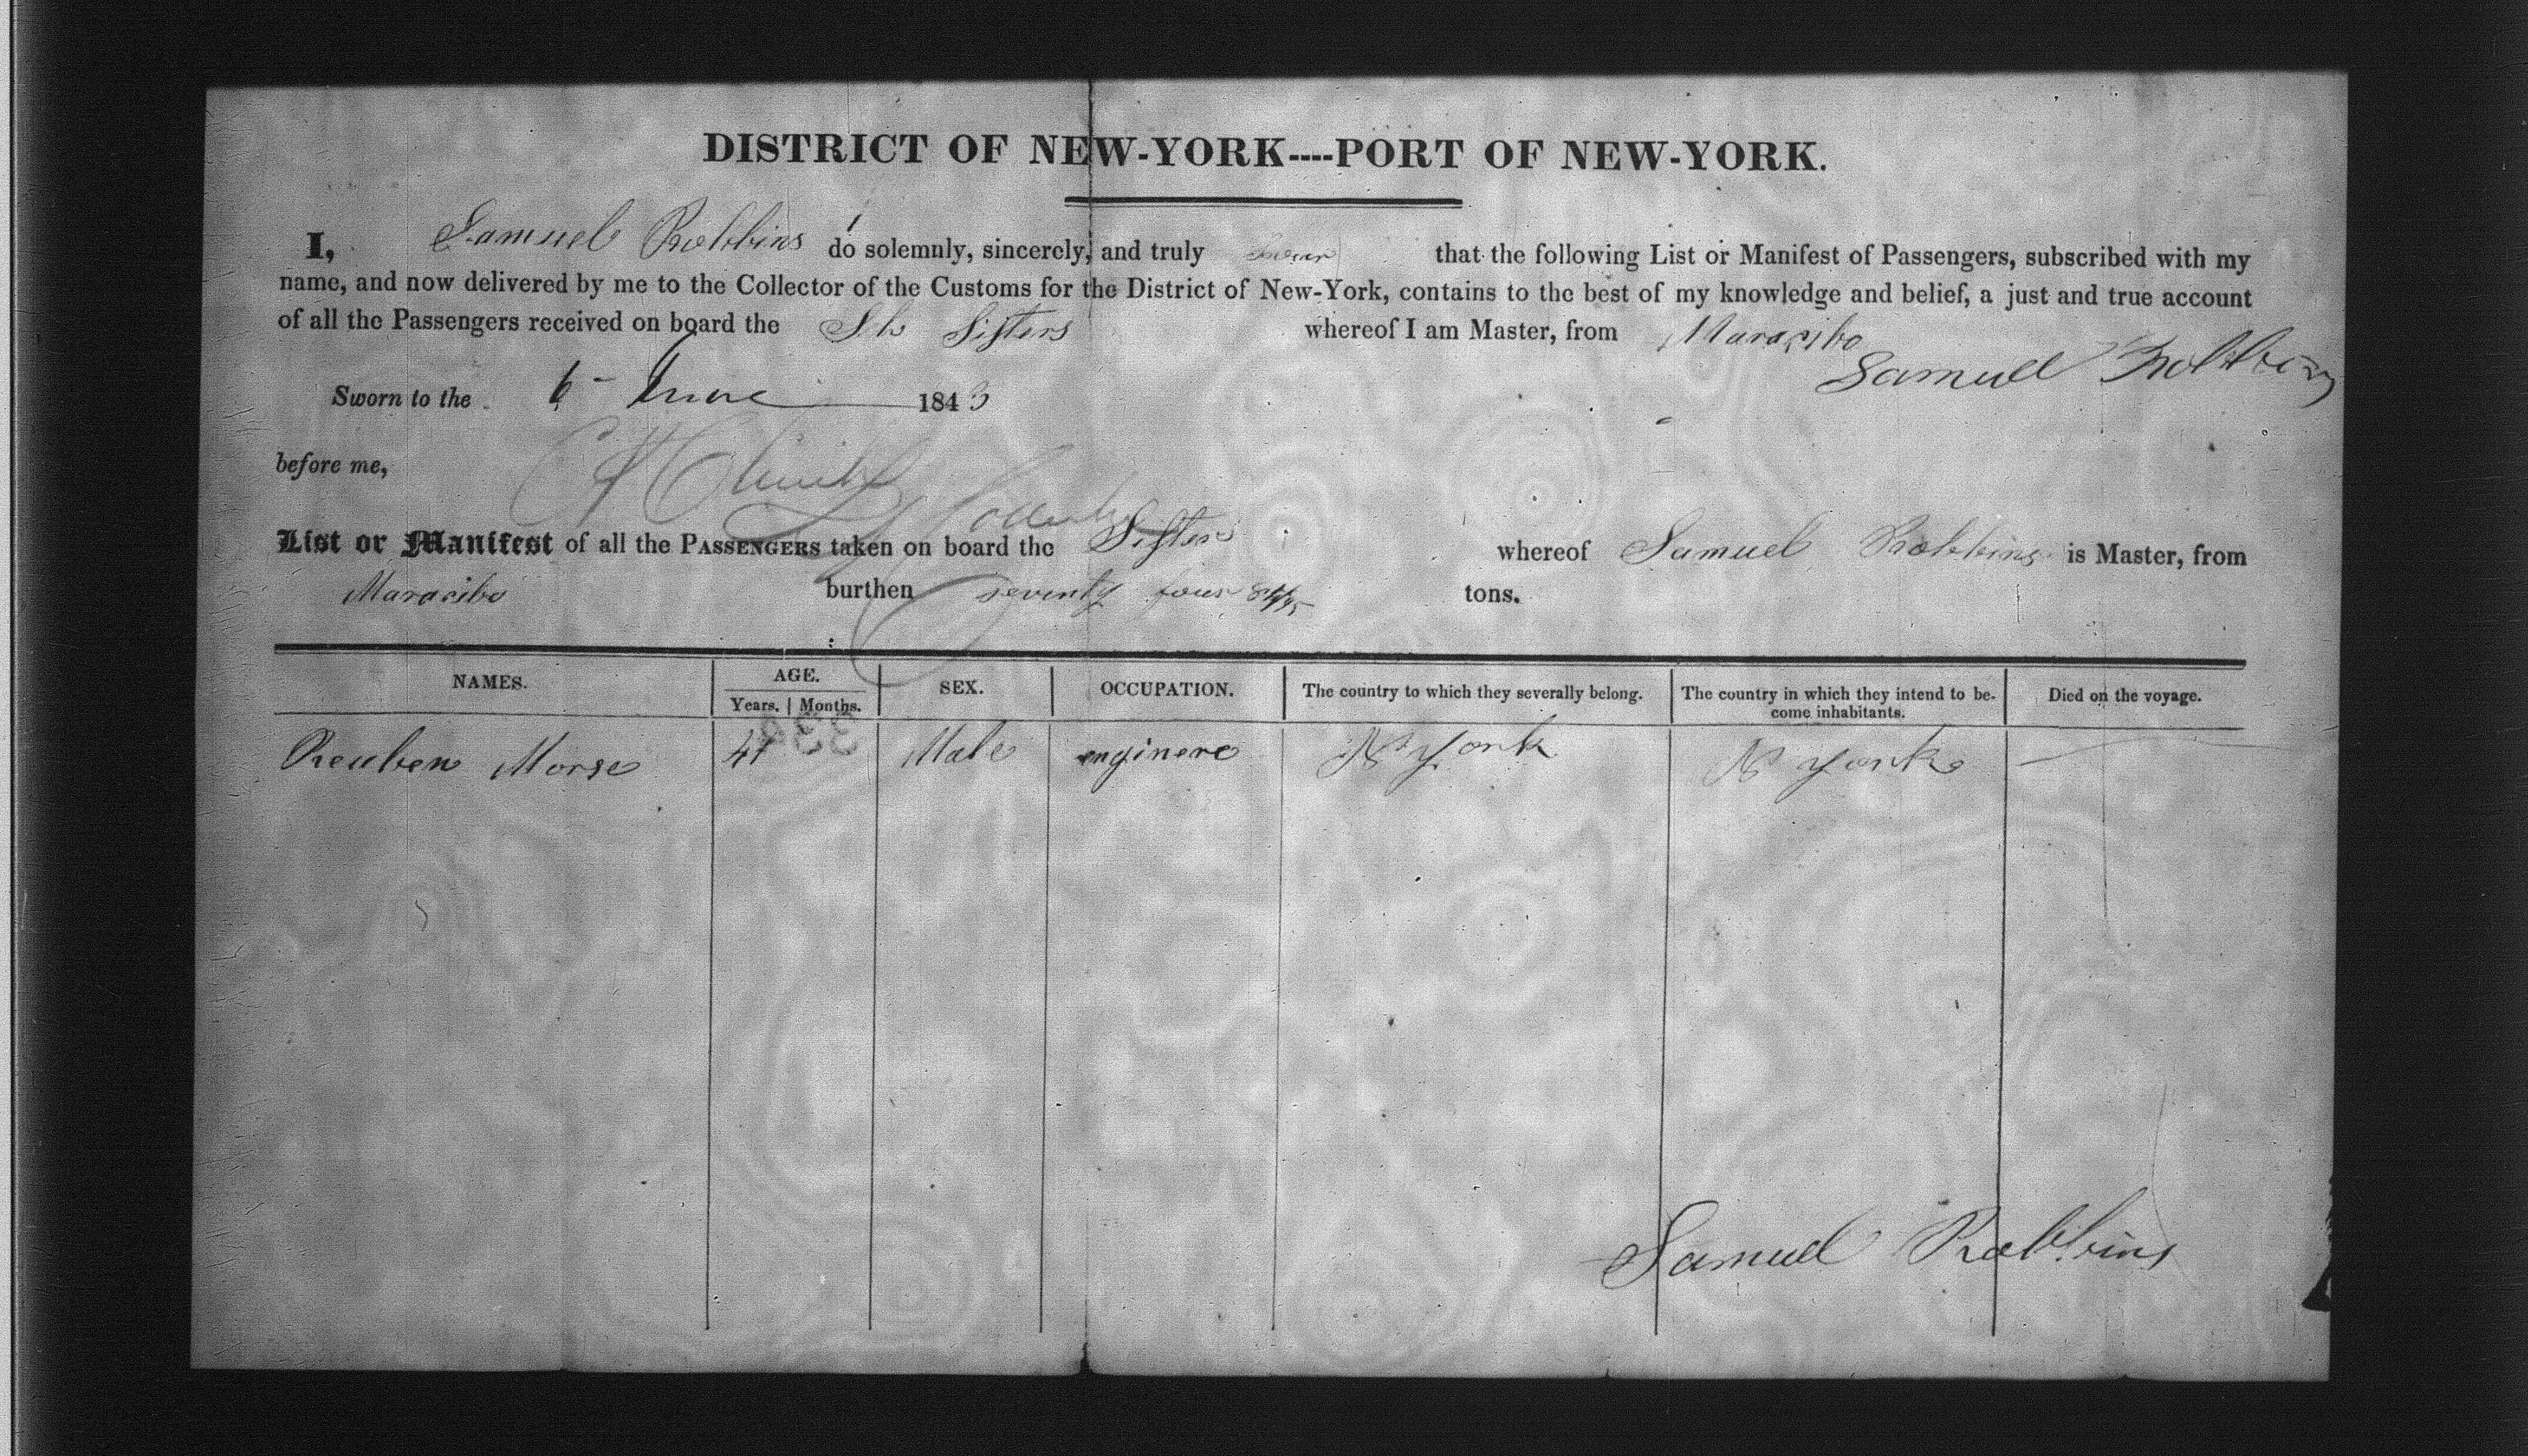 DISTRICT OF NEW-YORK----PORT OF NEW-YORK.
I, Samuel Robbins do solemnly, sincerely, and truly swear that the following List or Manifest of Passengers, subscribed with my
name, and now delivered by me to the Collector of the Customs for the District of New-York, contains to the best of my knowledge and belief, a just and true account
of all the Passengers received on board the Sch Sisters whereof I am Master, from Maracibo
Samuel Robbins
Sworn to the 6 - June 1843
before me,
List or Manifest of all the PASSENGERS taken on board the Sisters whereof Samuel Robbins is Master, from
Maracibo burthen seventy four 84/95 tons.
NAMES. AGE. SEX. OCCUPATION. The country to which they severally belong. The country in which they intend to be-
come inhabitants. Died on the voyage.
Years. Months.
Reuben Morse 41 Male enginere N York N York —
Samuel Robbins